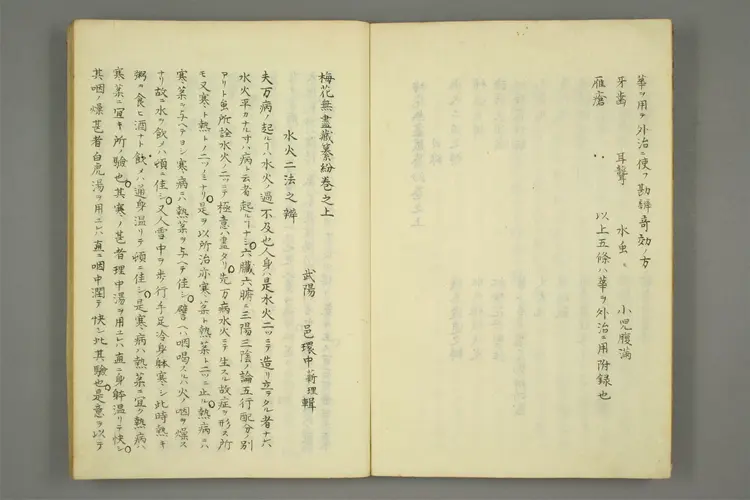 華ヲ用テ外治ニ使フ勘辨奇効ノ方
牙歯 耳聾 水虫 小児腹満
雁瘡 以上五條ハ華ヲ外治ニ用附録也
梅花無盡蔵纂紛巻之上
武陽 邑環中蘄理輯
水火二法之辨
夫万病ノ起ルヿハ水火ノ過不及也人身ハ是水火二ツニテ造リ立テタル者ナレハ
水火平カナル寸ハ病ト云者起ルヿナシ六臓六腑ニ三陽三陰ノ論五行配分ノ別
アリト虽所詮水火ノ二ツニテ極意ハ盡タリ先万病水火ニテ生スル故症ヲ形ス所
モ又寒ト熱トノ二ツノミナリ是ヲ以所治亦寒薬ト熱薬ト二ツニ止ル熱病ニハ
寒薬ヲ与ヘテヨシ寒病ニハ熱薬ヲ与ヘテ佳シ譬ヘハ咽喝スルハ火ノ咽ヲ燥ス
ナリ故ニ水ヲ飲メハ頓ニ佳シ又人雪中ヲ歩行手足冷身躰寒シ此時熱キ
粥ヲ食ヒ酒ナト飲メハ通身温リテ頓ニ佳シ是寒病ハ熱薬ニ宜ク熱病ハ
寒薬ニ宜キ所ノ驗也其寒ノ甚者理中湯ヲ用ユレハ直ニ身躰温リテ快シ
其咽ノ燥甚者白虎湯ヲ用ユレハ直ニ咽中潤テ快シ此其驗也是意ヲ以テ